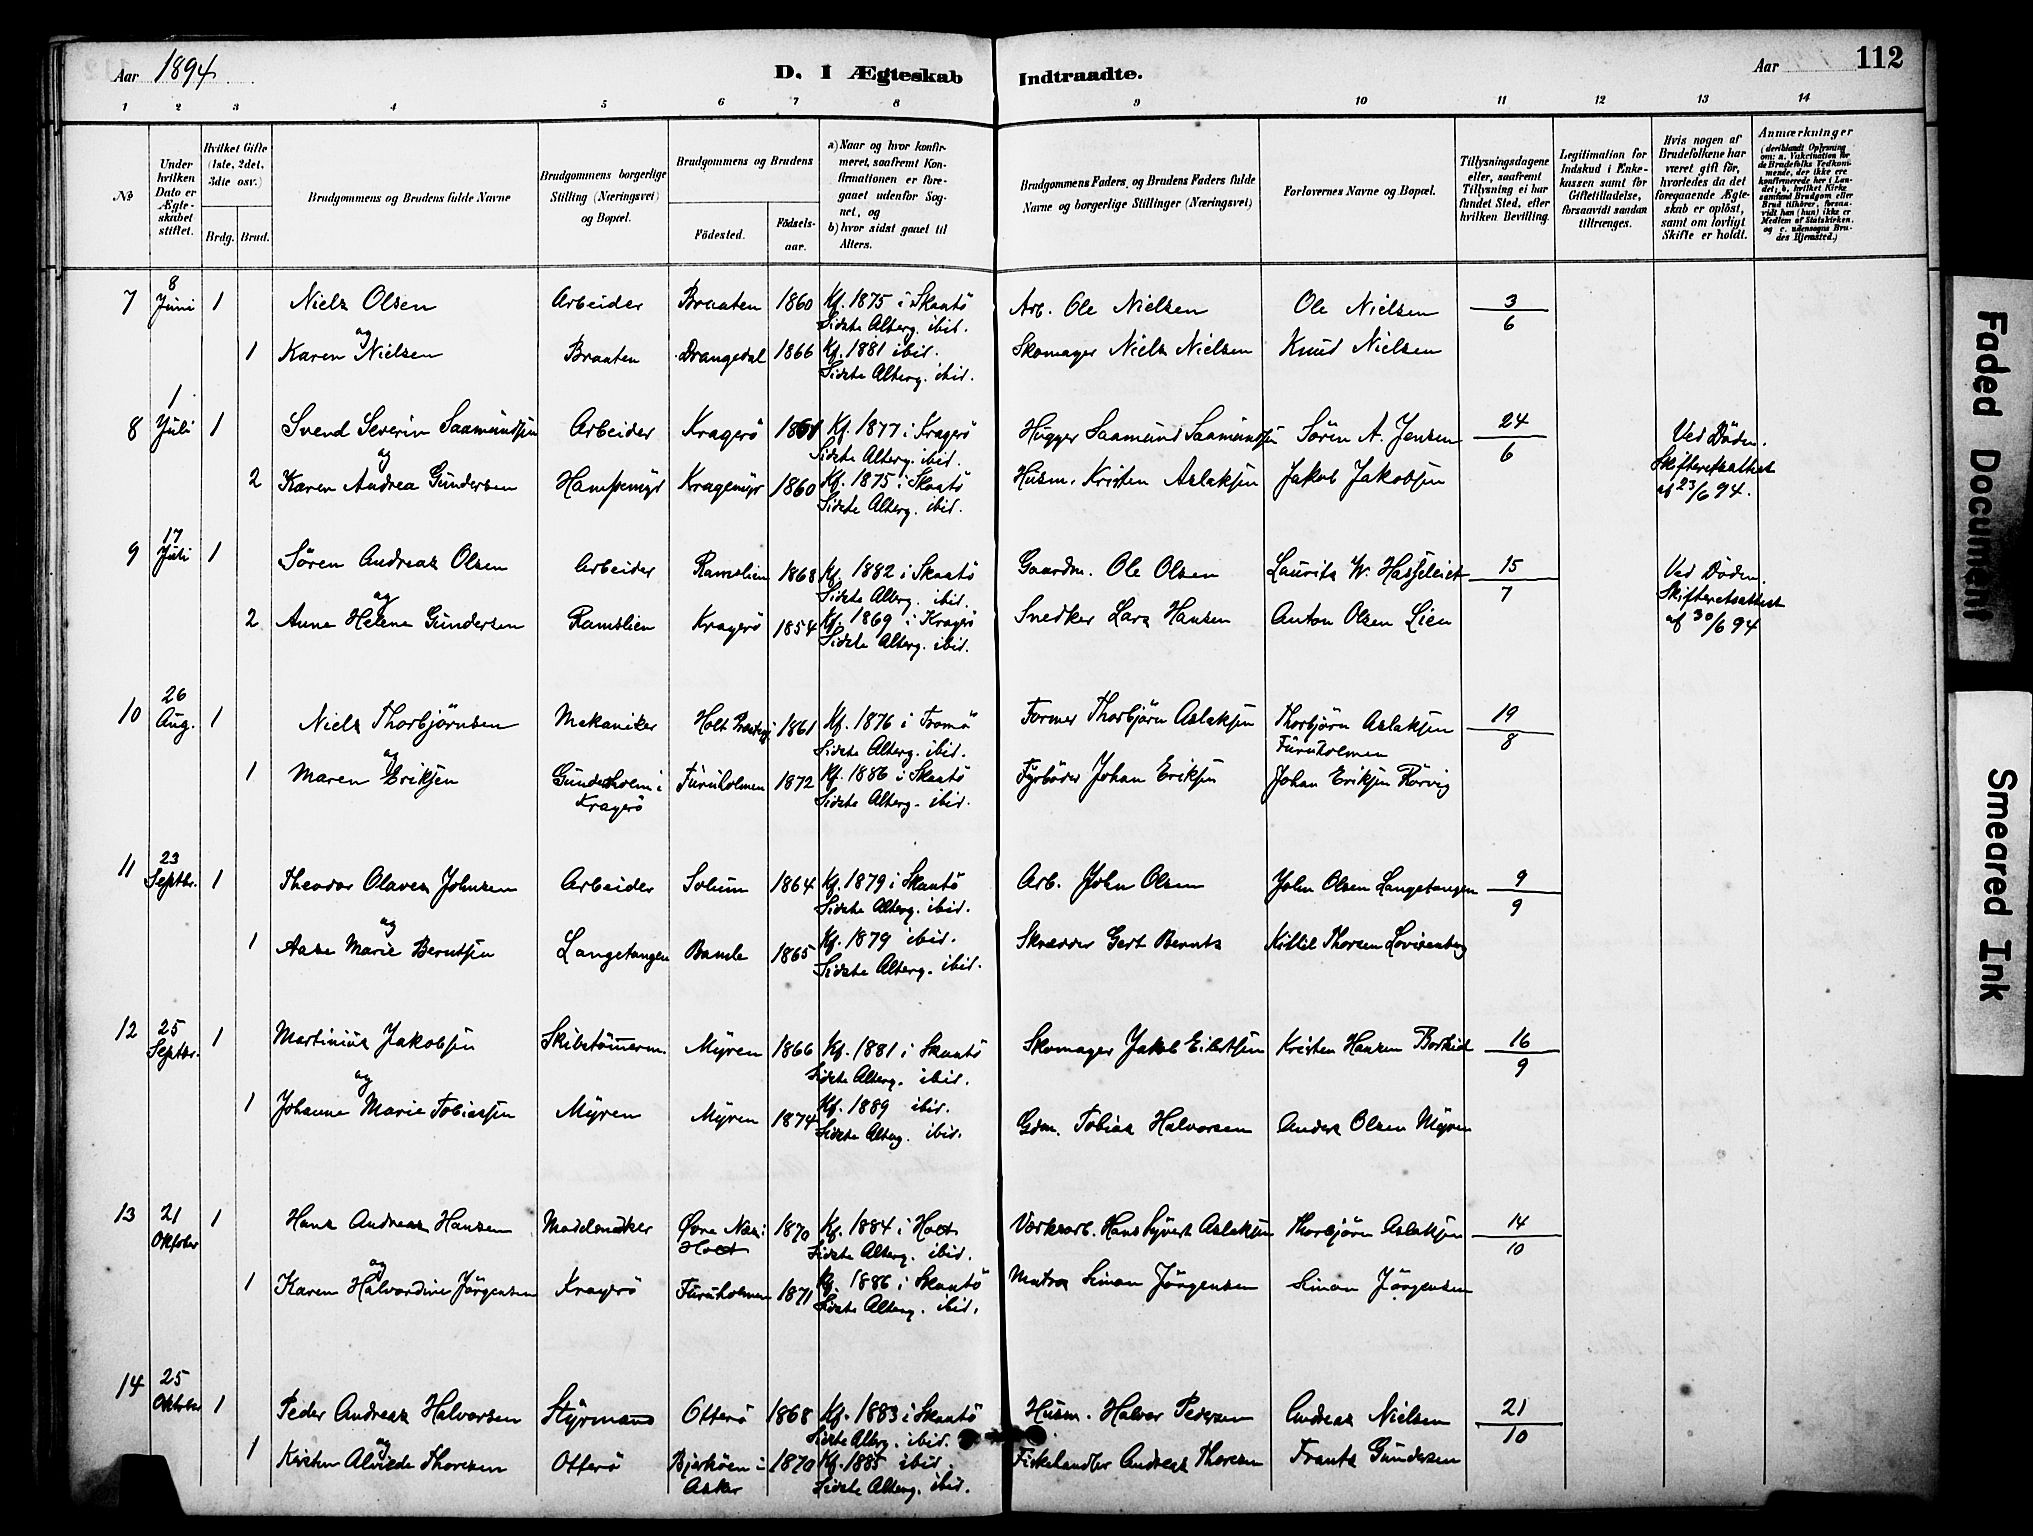 Aar 1894. D. I Ægteskab Indtraadte. Aar 112
1 2 3 4 5 6 7 8 9 10 11 12 13 14
No
Under hvilken Dato er Ægteskabet stiftet.
Hvilket Gifte (1ste, 2det, 3die osv.)
Brdg. Brud.
Brudgommens og Brudens fulde Navne
Brudgommens borgerlige Stilling (Næringsvei) og Bopæl.
Brudgommens og Brudens
Födested. Födselsaar.
a) Naar og hvor konfirmeret, saafremt Konfirmationen er foregaaet udenfor Sognet, og
b) hvor sidst gaaet til Alters.
Brudgommens Faders og Brudens Faders fulde Navne og borgerlige Stillinger (Næringsvei)
Forlovernes Navne og Bopæl.
Tillysningsdagene eller, saafremt Tillysning ei har fundet Sted, efter hvilken Bevilling.
Legitimation for Indskud i Enkekassen samt for Giftetilladelse, forsaavidt saadan tiltrænges.
Hvis nogen af Brudefolkene har været gift för, hvorledes da det foregaaende Ægteskab er oplöst, samt om lovligt Skifte er holdt.
Anmærkninger (deriblandt Oplysning om: a. Vakcination for de Brudefolks Vedkommende, der ikke ere konfirmerede her i Landet; b. hvilket Kirkesamfund Brudgom eller Brud tilhörer, forsaavidt han (hun) ikke er Medlem af Statskirken, og c. udensogns Brudes Hjemsted.)
7 8 Juni 1 Niels Olsen Arbeider Braaten 1860 Kf. 1875 i Skaatö Sidste Alterg. ibid. Arb. Ole Nielsen Ole Nielsen 3/6
og
1 Karen Nielsen Braaten Drangedal 1866 Kf. 1881 ibid. Sidste Alterg. ibid. Skomager Niels Nielsen Knud Nielsen
8 1 Juli 1 Svend Severin Saamundsen Arbeider Kragerö Kf. 1877 i Kragerö Sidste Alterg. ibid. Hugger Saamund Saamundsen Sören A. Jensen 24/6 Ved Döden. Skifteretsattest af 23/6 94.
og
2 Karen Andrea Gundersen 1860 Kf. 1875 i Skaatö Sidste Alterg. ibid. Husm. Kristen Aslaksen Jakob Jakobsen
9 17 Juli 1 Sören Andreas Olsen Arbeider Ramslien 1868 Kf. 1882 i Skaatö Sidste Alterg. ibid. Gaardm. Ole Olsen Laurits W. 15/7 Ved Döden. Skifteretsattest af 30/6 94
og
2 Anne Helene Gundersen Ramslien Kragerö 1854 Kf. 1869 i Kragerö Sidste Alterg. ibid. Snedker Lars Hansen Anton Olsen Lien
10 26 Aug. 1 Niels Thorbjörnsen Mekaniker Holt 1861 Kf. 1876 i Tromö Sidste Alterg. ibid. Former Thorbjörn Aslaksen Thorbjörn Aslaksen Furuholmen 19/8
og
1 Maren Eriksen Gunderholm i Kragerö Furuholmen 1872 Kf. 1886 i Skaatö Sidste Alterg. ibid. Fyrböder Johan Eriksen Johan Eriksen Rörvig
11 23 Septbr. 1 Theodor Olaves Johnsen Arbeider Solum 1864 Kf. 1879 i Skaatö Sidste Alterg. ibid. Arb. John Olsen John Olsen Langetangen 9/9
og
1 Aase Marie Berntsen Langetangen Bamle 1865 Kf. 1879 ibid. Sidste Alterg. ibid. Skrædder Gert Bernts Kittil Thorsen Lovisenberg
12 25 Septbr. 1 Martinius Jakobsen Skibstömerm. Myren 1866 Kf. 1881 i Skaatö Sidste Alterg. ibid. Skomager Jakob Eilertsen Kristen Hansen 16/9
og
1 Johanne Marie Tobiassen Myren Myren 1874 Kf. 1889 ibid. Sidste Alterg. ibid. Gdm. Tobias Halvorsen Anders Olsen Myren
13 21 Oktober 1 Hans Andreas Hansen Modelsnedker Övre Næs i Holt 1870 Kf. 1884 i Holt Sidste Alterg. ibid. Værksarb. Hans Syvert Aslaksen Thorbjörn Aslaksen 14/10
og
1 Karen Halvordine Jörgensen Kragerö Furuholmen 1871 Kf. 1886 i Skaatö Sidste Alterg. ibid. Matros Simon Jörgensen Simon Jörgensen
14 25 Oktober 1 Peder Andreas Halvorsen Styrmand Otterö 1868 Kf. 1883 i Skaatö Sidste Alterg. ibid. Husm. Halvor Pedersen Andreas Nielsen 21/10
og
1 Kirsten Alvilde Thoresen Otterö Bjerköen i Asker 1870 Kf. 1885 ibid. Sidste Alterg. ibid. Fiskehandler Andreas Thoresen Frants Gundersen
Faded Document
Smeared Ink